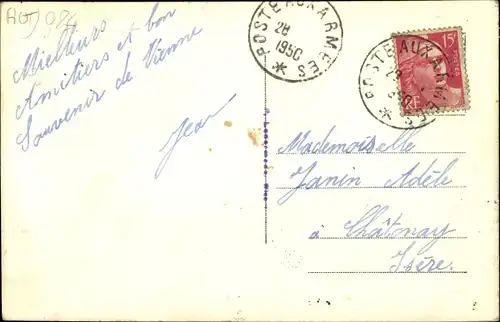 AUT 024
Meilleurs
Amitiers et bon
Souvenir de Vienne
Jean
POSTE AUX ARMEES
28
1950
*
POSTE AUX ARMEES
28
1950
*
15F
RF
Mademoiselle
Janin Adèle
à Châtonay
Isère.